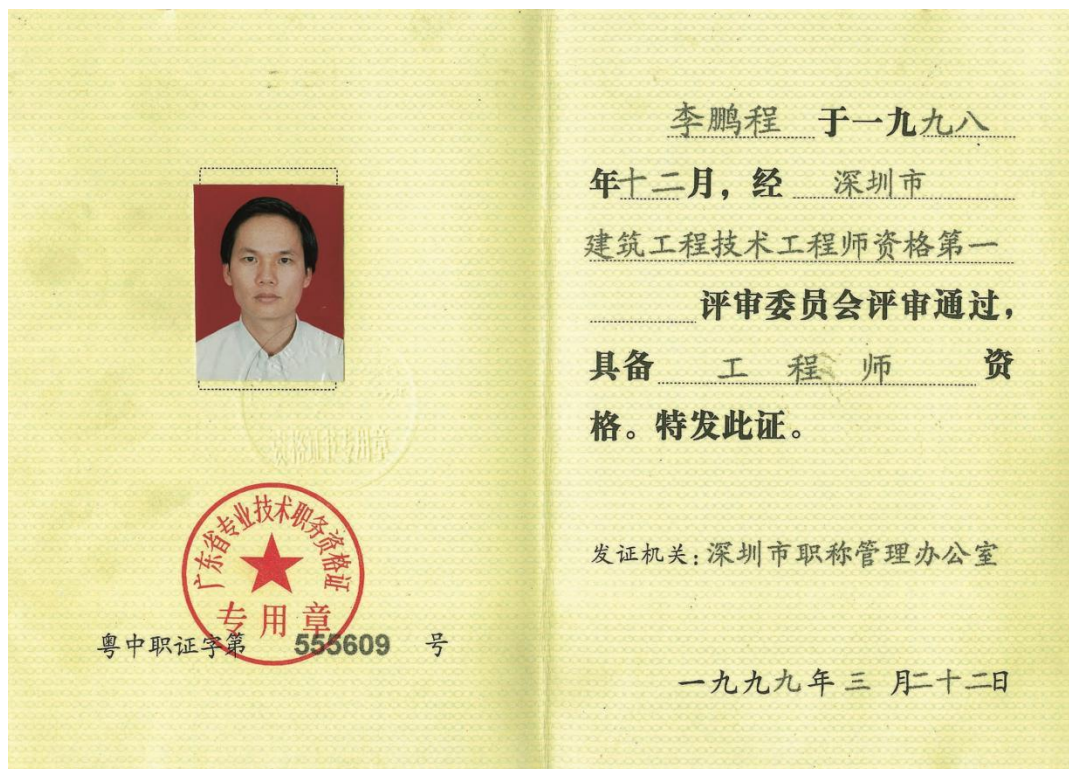 资格证书专用章
广东省专业技术职务资格证
专用章
粤中职证字第 555609 号
李鹏程 于一九九八
年十二月，经 深圳市
建筑工程技术工程师资格第一
评审委员会评审通过，
具备 工程师 资
格。特发此证。
发证机关：深圳市职称管理办公室
一九九九年三月二十二日